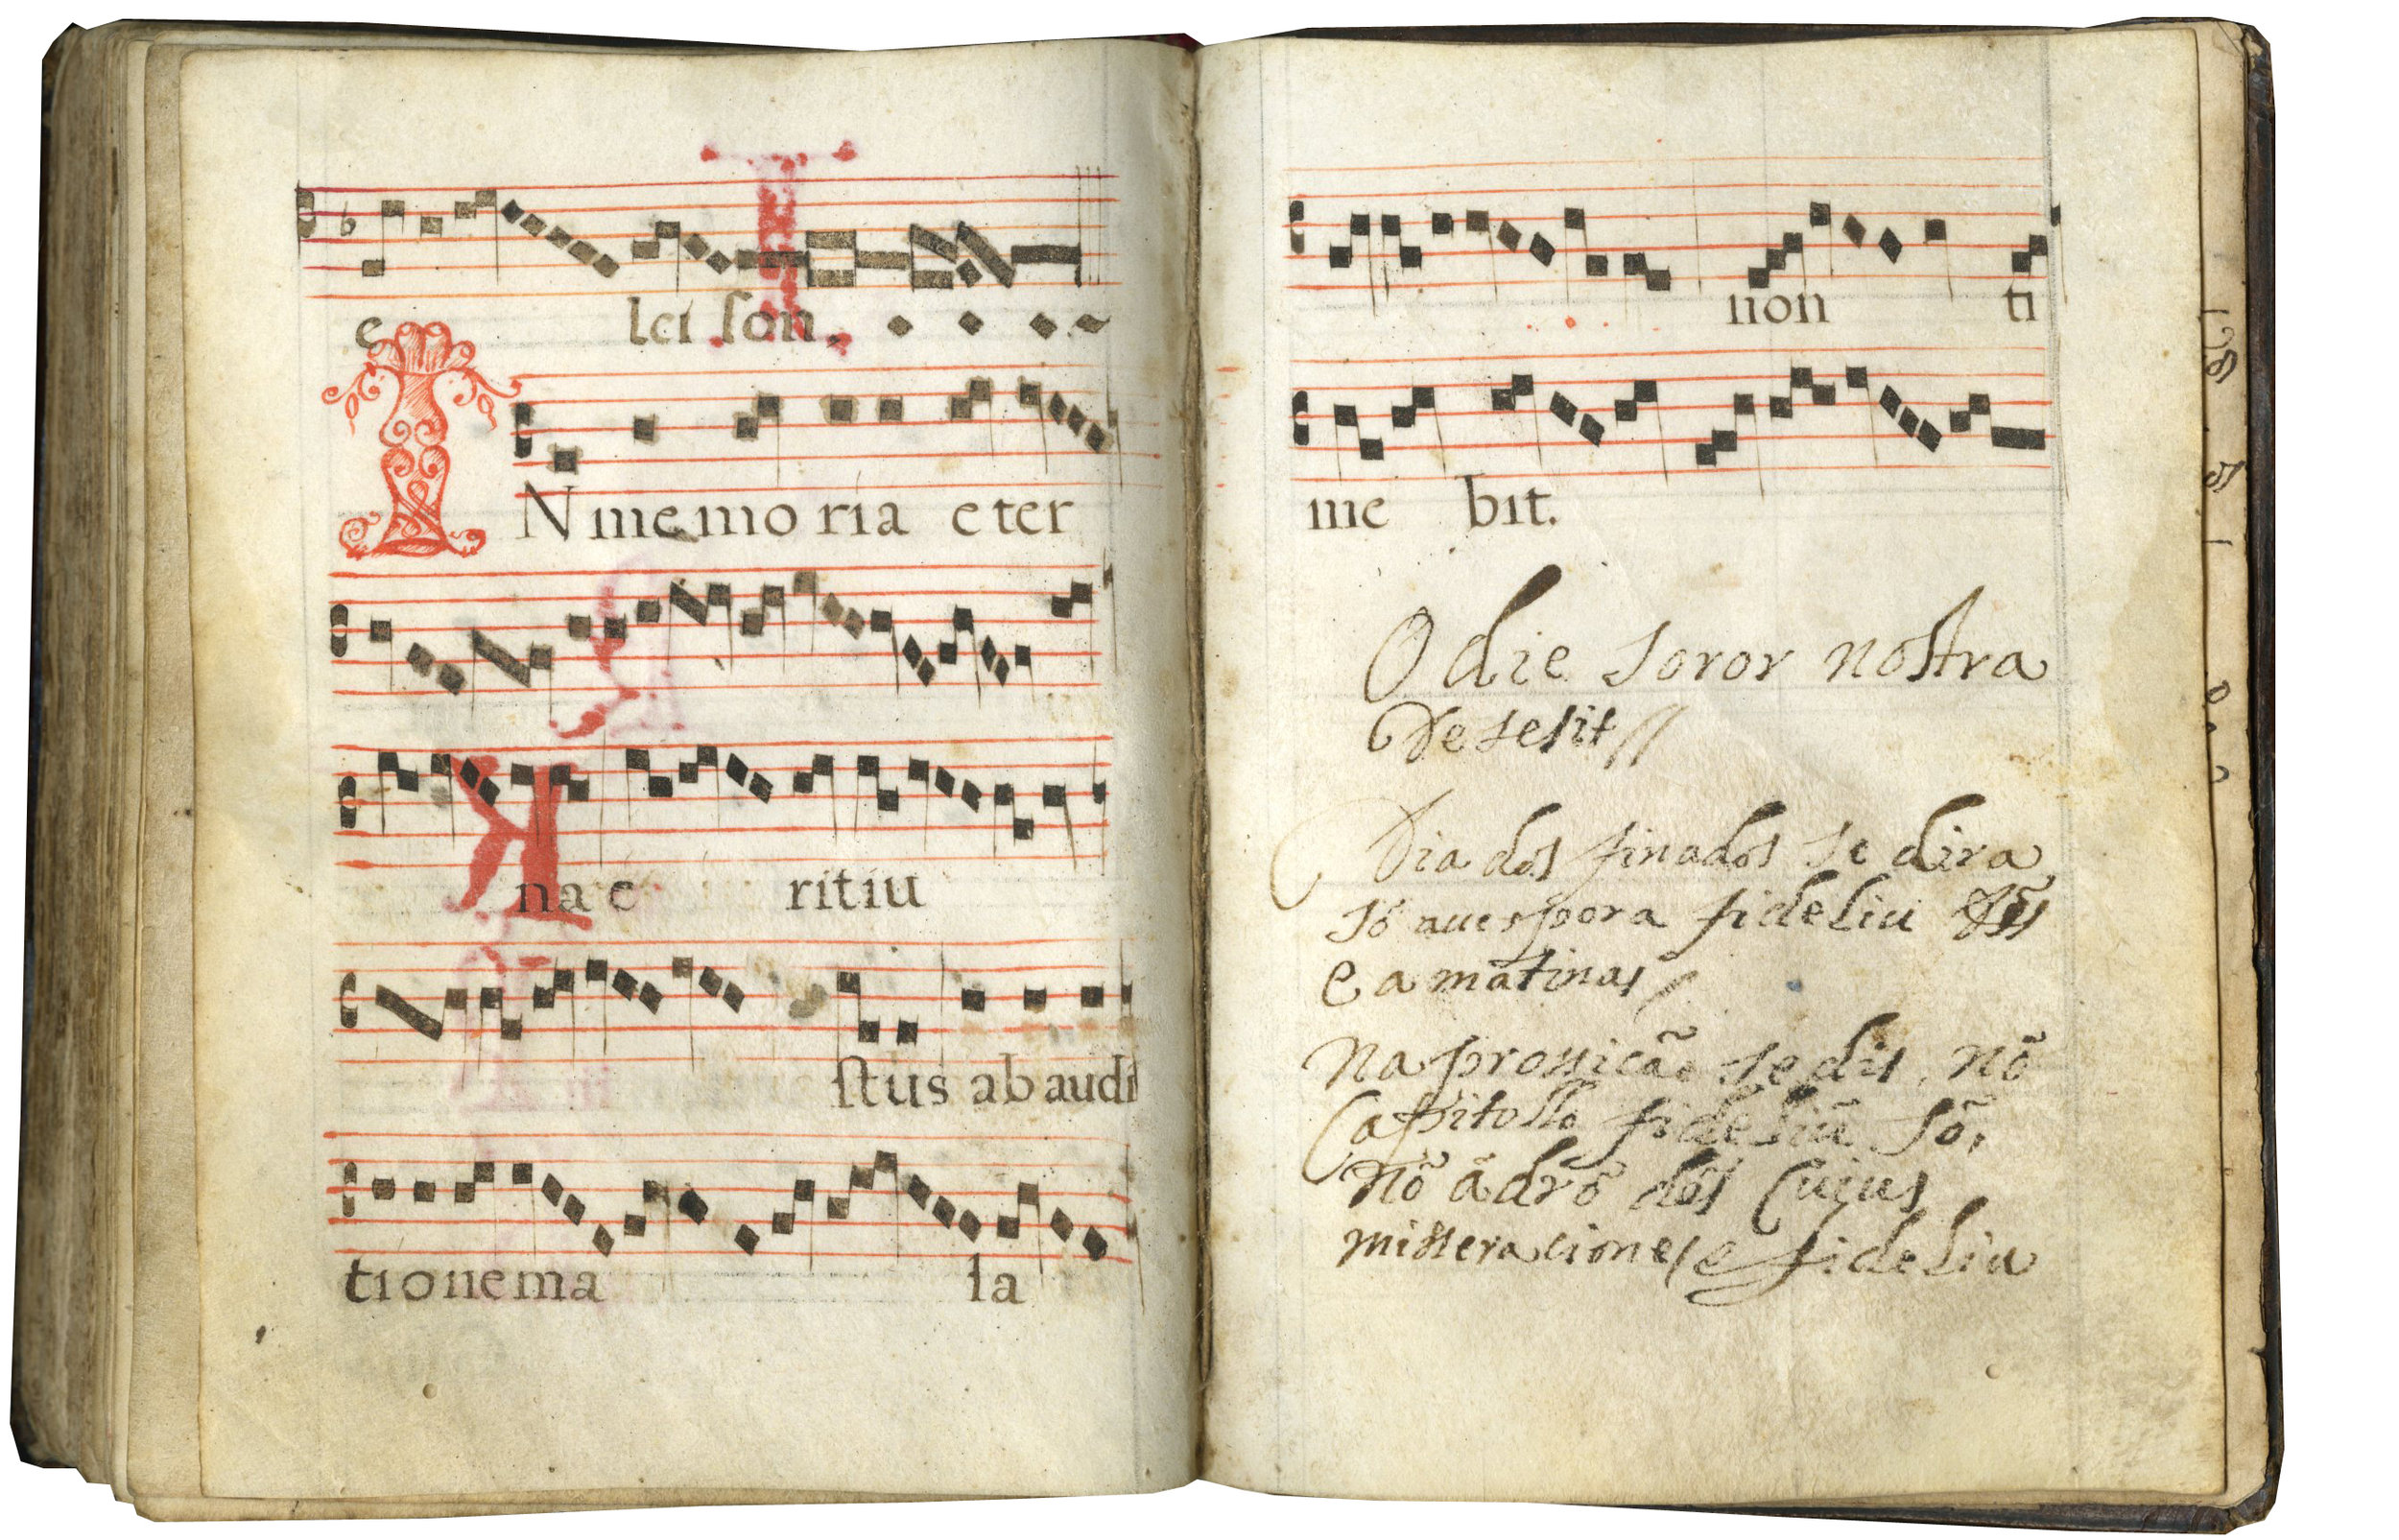 e lei son.
IN memoria eter
na e ritiu
stus ab audi
tionema la
non ti
me bit.
Odie soror nostra
Desesit//
Dia dos finados se dira
Sô auespora fideliu
e a mãtinas/
Na prossicão se dis, nõ
Capitollo fideliũ Sô,
Nõ ãdrõ dos Cuius
misseraciones e fideliu